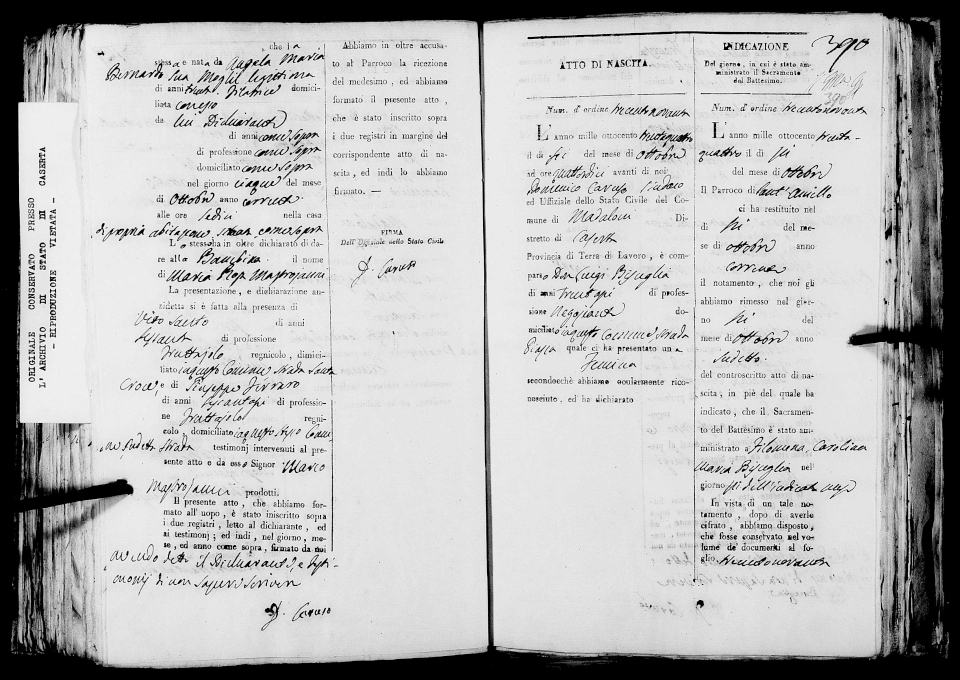 ORIGINALE CONSERVATO PRESSO
L' ARCHIVIO DI STATO DI CASERTA
- RIPRODUZIONE VIETATA -
che la
stessa e nata da Angela Maria
Bernardo sua Moglie legittima
di anni trenta Filatrice domici-
liata
da lui Dichiarante
di anni come sopra
di professione come sopra
domiciliato come sopra
nel giorno cinque del mese
di Ottobre anno corrente
alle ore sedici nella casa
di propria abitazione strada come sopra
L'o stesso ha in oltre dichiarato di da-
re alla Bambina il nome
di Maria Mastrojanni
La presentazione, e dichiarazione an-
zidetta si è fatta alla presenza di
Vito Santo di anni
sessanta di professione
fruttajolo regnicolo, domici-
liato in questo Comune Strada Santa
Croce, e di Giuseppe Ferraro
di anni di professio-
ne fruttajolo regni-
colo, domiciliato in questo stesso Comu-
ne, sudetta strada testimonj intervenuti al pre-
sente atto e da esso Signor Marco
Mastrojanni prodotti.
Il presente atto, che abbiamo for-
mato all'uopo, è stato iniscritto sopra
i due registri, letto al dichiarante, ed
ai testimonj; ed indi, nel giorno, me-
se, ed anno come sopra, firmato da noi
avendo detto il Dichiarante, e Testi-
monj di non sapere scrivere
Caruso
Abbiamo in oltre accusa-
to al Parroco la ricezione
del medesimo, ed abbiamo
formato il presente atto,
che è stato inscritto sopra
i due registri in margine del
corrispondente atto di na-
scita, ed indi lo abbiamo
firmato. —
FIRMA
Dell'Uffiziale dello Stato Civile
Caruso
ATTO DI NASCITA.
Num. d'ordine trecentonovanta
L'anno mille ottocento trentaquattro
il dì sei del mese di Ottobre
ad ore quattordici avanti di noi
Domenico Caruso Sindaco
ed Uffiziale dello Stato Civile del Co-
mune di Madaloni Di-
stretto di Caserta
Provincia di Terra di Lavoro, è com-
parso Don Luigi Bisceglia
di anni di profes-
sione Negoziante do-
miciliato in questo Comune Strada
Piazza quale ci ha presentato una
Femina
secondocchè abbiamo ocularmente rico-
nosciuto, ed ha dichiarato
390
INDICAZIONE
Del giorno, in cui è stato am-
ministrato il Sacramento
del Battesimo.
Num. d'ordine trecentonovanta
L'anno mille ottocento trenta-
quattro il dì sei
del mese di Ottobre
Il Parroco di Sant'Aniello
ci ha restituito nel
dì sei del me-
se di Ottobre anno
corrente
il notamento, che noi gli
abbiamo rimesso nel gior-
no sei del
mese di Ottobre anno
sudetto.
del controscritto atto di na-
scita, in piè del quale ha
indicato, che il Sacramen-
to del Battesimo è stato am-
ministrato a Filomena, Carolina
Maria Bisceglia nel
giorno sei dell'indicato mese
In vista di un tale no-
tamento, dopo di averlo
cifrato, abbiamo disposto,
che fosse conservato nel vo-
lume de' documenti al fo-
glio trecentonovanta